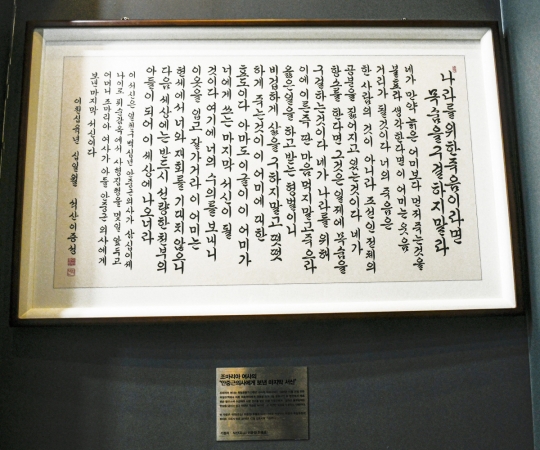 나라를 위한 죽음이라면
목숨을 구걸하지말라
네가 만약 늙은 어미보다 먼저 죽는것을
불효라 생각한다면 이 어미는 웃음
거리가 될것이다 너의 죽음은
한 사람의 것이 아니라 조선인 전체의
공분을 짊어지고 있는것이다 네가
항소를 한다면 그것은 일제에 목숨을
구걸하는것이다 네가 나라를 위해
이에 이른즉 딴 맘을 먹지말고 죽으라
옳은일을 하고 받는 형벌이니
비겁하게 삶을 구하지말고 떳떳
하게 죽는것이 이 어미에 대한
효도이다 아마도 이글이 이 어미가
너에게 쓰는 마지막 서신이 될
것이다 여기에 너의 수의를 보내니
이옷을 입고 잘가거라 이 어미는
현세에서 너와 재회를 기대치 않으니
다음 세상에는 반드시 선량한 천부의
아들이 되어 이 세상에 나오너라
이 서신은 일제구백십년 안중근의사가 삼십이세
나이로 뤼순감옥에서 사형집행을 몇일 앞두고
어머니 조마리아 여사가 아들 안중근 의사에게
보낸 마지막 서신이다
이천십육년 십일월
조마리아 여사의
"안중근의사에게 보낸 마지막 서신"